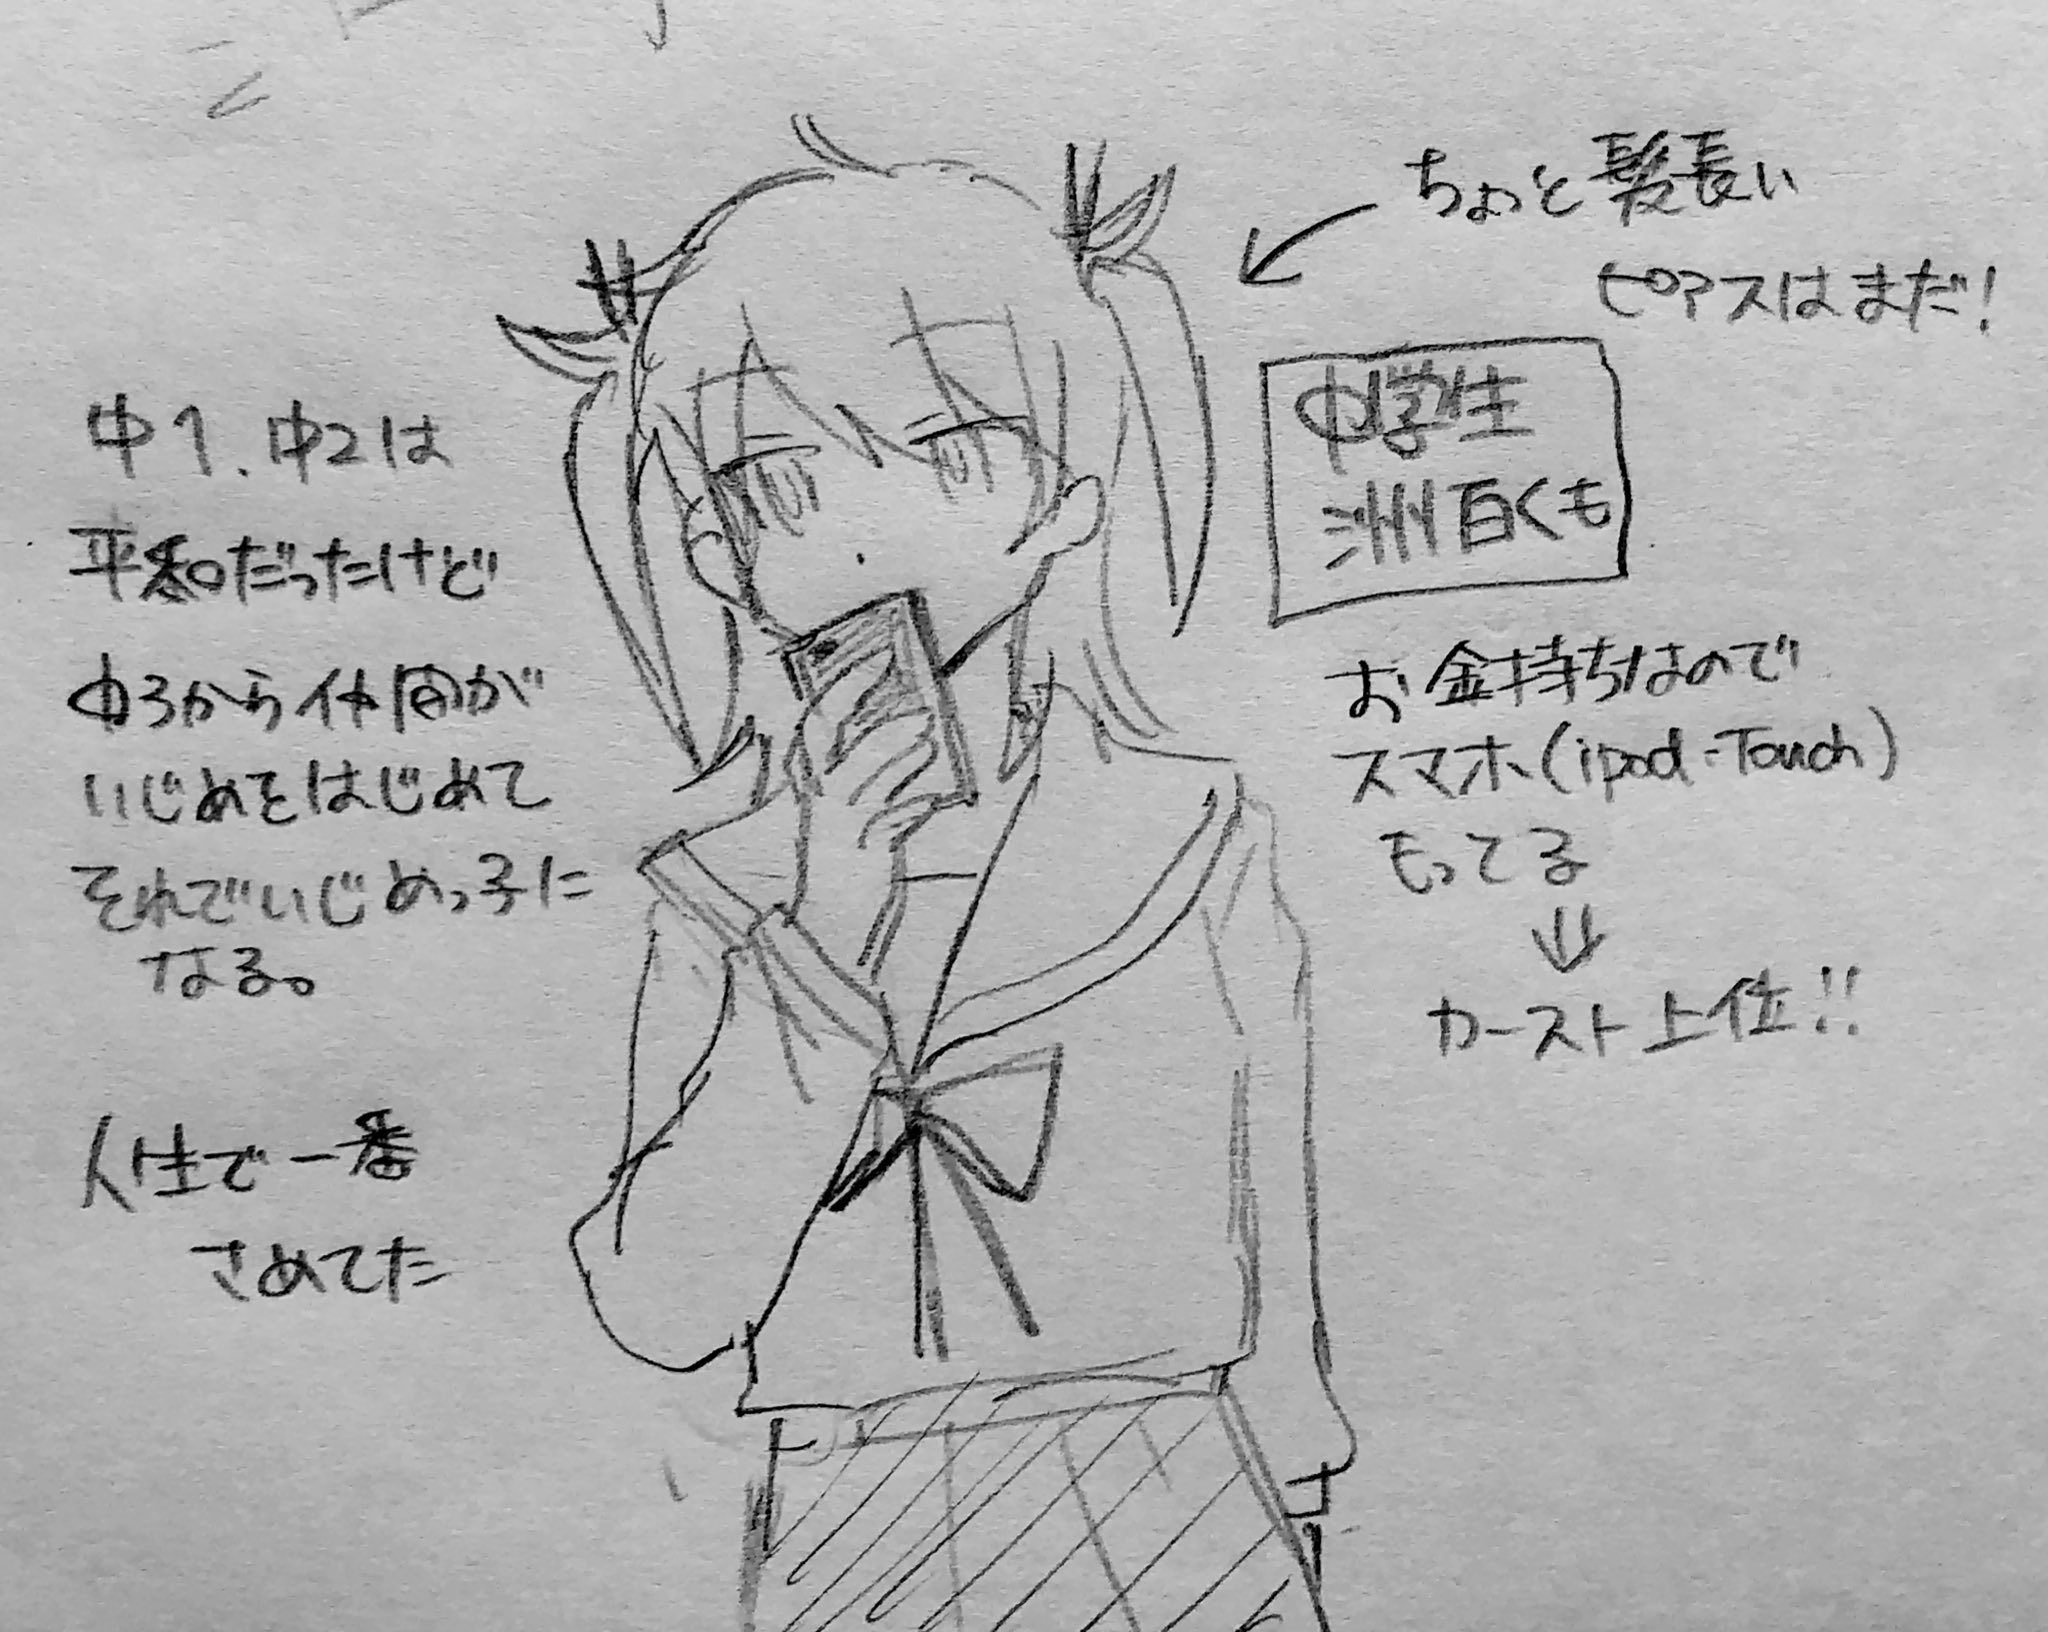 ちょっと髪長い
ピアスはまだ!
中学生
洲百くも
お金持ちなので
スマホ(ipod-Touch)
もってる
⇓
カースト上位!!
中1.中2は
平和だったけど
中3から仲間が
いじめをはじめて
それでいじめっ子に
なる。
人生で一番
さめてた